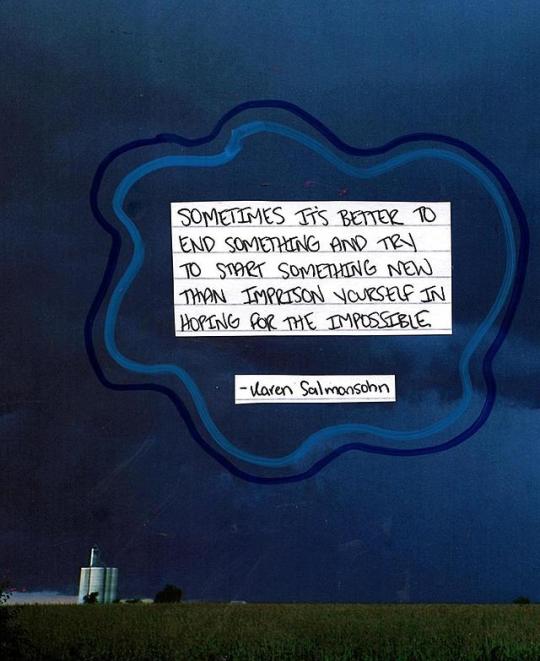 SOMETIMES IT'S BETTER TO
END SOMETHING AND TRY
TO START SOMETHING NEW
THAN IMPRISON YOURSELF IN
HOPING FOR THE IMPOSSIBLE.
-Karen Salmansohn